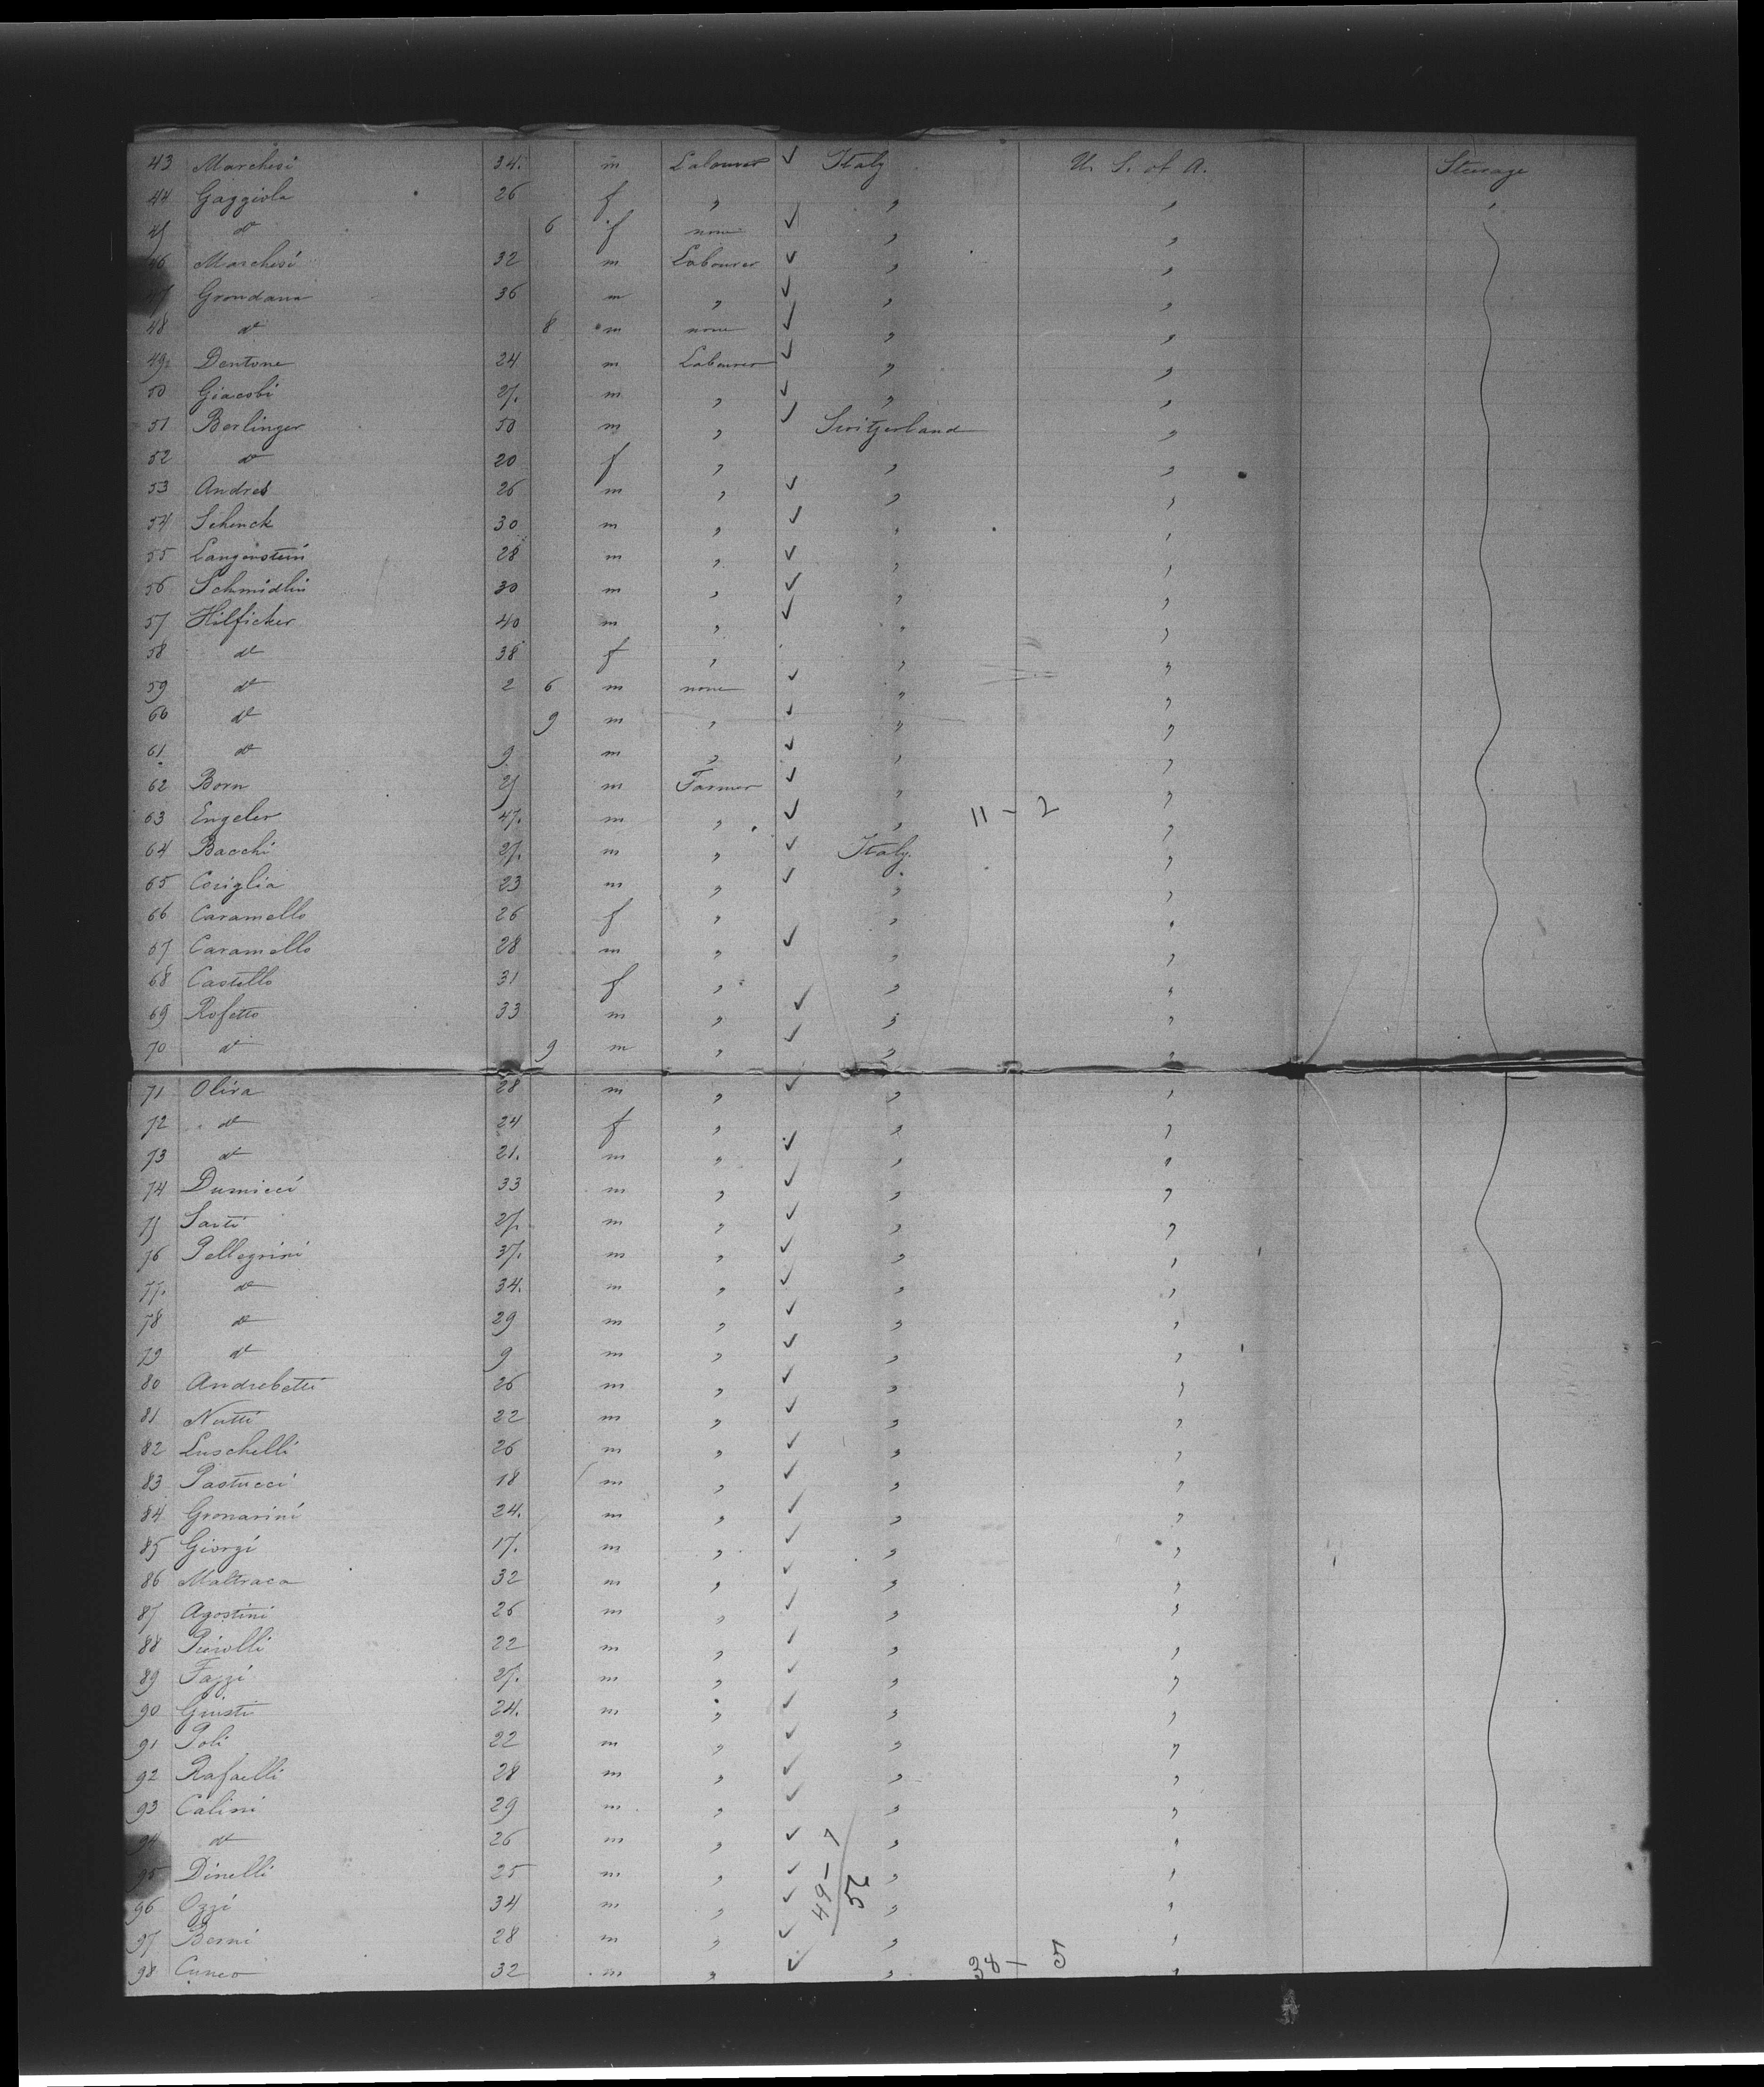 43 Marchesi 34. m Labourer ✓ Italy U. S. of A. Steerage
44 Gaggiola 26 f " " " "
45 do 6 f none ✓ " "
46 Marchesi 32 m Labourer ✓ " "
47 Grondana 36 m " ✓ " "
48 do 8 m none ✓ " "
49 Dentone 24 m Labourer ✓ " "
50 Giacobi 27. m " ✓ " "
51 Berlinger 50 m " ✓ Switzerland "
52 do 20 f " " "
53 Andres 26 m " ✓ " "
54 Schenck 30 m " ✓ " "
55 Langenstein 28 m " ✓ " "
56 Schmidlin 30 m " ✓ " "
57 Hilficker 40 m " ✓ " "
58 do 38 f " " "
59 do 2 6 m none ✓ " "
60 do 9 m " ✓ " "
61 do 9 m " ✓ " "
62 Born 25 m Farmer ✓ " "
63 Engeler 47. m " ✓ " 11 - 2 "
64 Bacchi 27. m " ✓ Italy. "
65 Coriglia 23 m " ✓ " "
66 Caramello 26 f " " "
67 Caramello 28 m " ✓ " "
68 Castello 31 f " " "
69 Rofetto 33 m " ✓ " "
70 do 9 m " ✓ " "
71 Oliva 28 m " ✓ " "
72 do 24 f " " "
73 do 21. m " ✓ " "
74 Dumicci 33 m " ✓ " "
75 Sarti 27. m " ✓ " "
76 Pellegrini 37. m " ✓ " "
77. do 34. m " ✓ " "
78 do 29 m " ✓ " "
79 do 9 m " ✓ " "
80 Andrebetti 26 m " ✓ " "
81 Nutti 22 m " ✓ " "
82 Luschelli 26 m " ✓ " "
83 Pastucci 18 m " ✓ " "
84 Gronarini 24. m " ✓ " "
85 Giorgi 17. m " ✓ " "
86 Maltraca 32 m " ✓ " "
87 Agostini 26 m " ✓ " "
88 Pierolli 22 m " ✓ " "
89 Fazzi 27. m " ✓ " "
90 Giusti 24. m " ✓ " "
91 Poli 22 m " ✓ " "
92 Rafaelli 28 m " ✓ " "
93 Calini 29 m " ✓ " "
94 do 26 m " ✓ " "
95 Dinelli 25 m " ✓ " "
96 Ozzi 34 m " ✓ " "
97 Berni 28 m " ✓ " "
98 Cuneo 32 m " ✓ " "
49 - 7
56
38 - 5